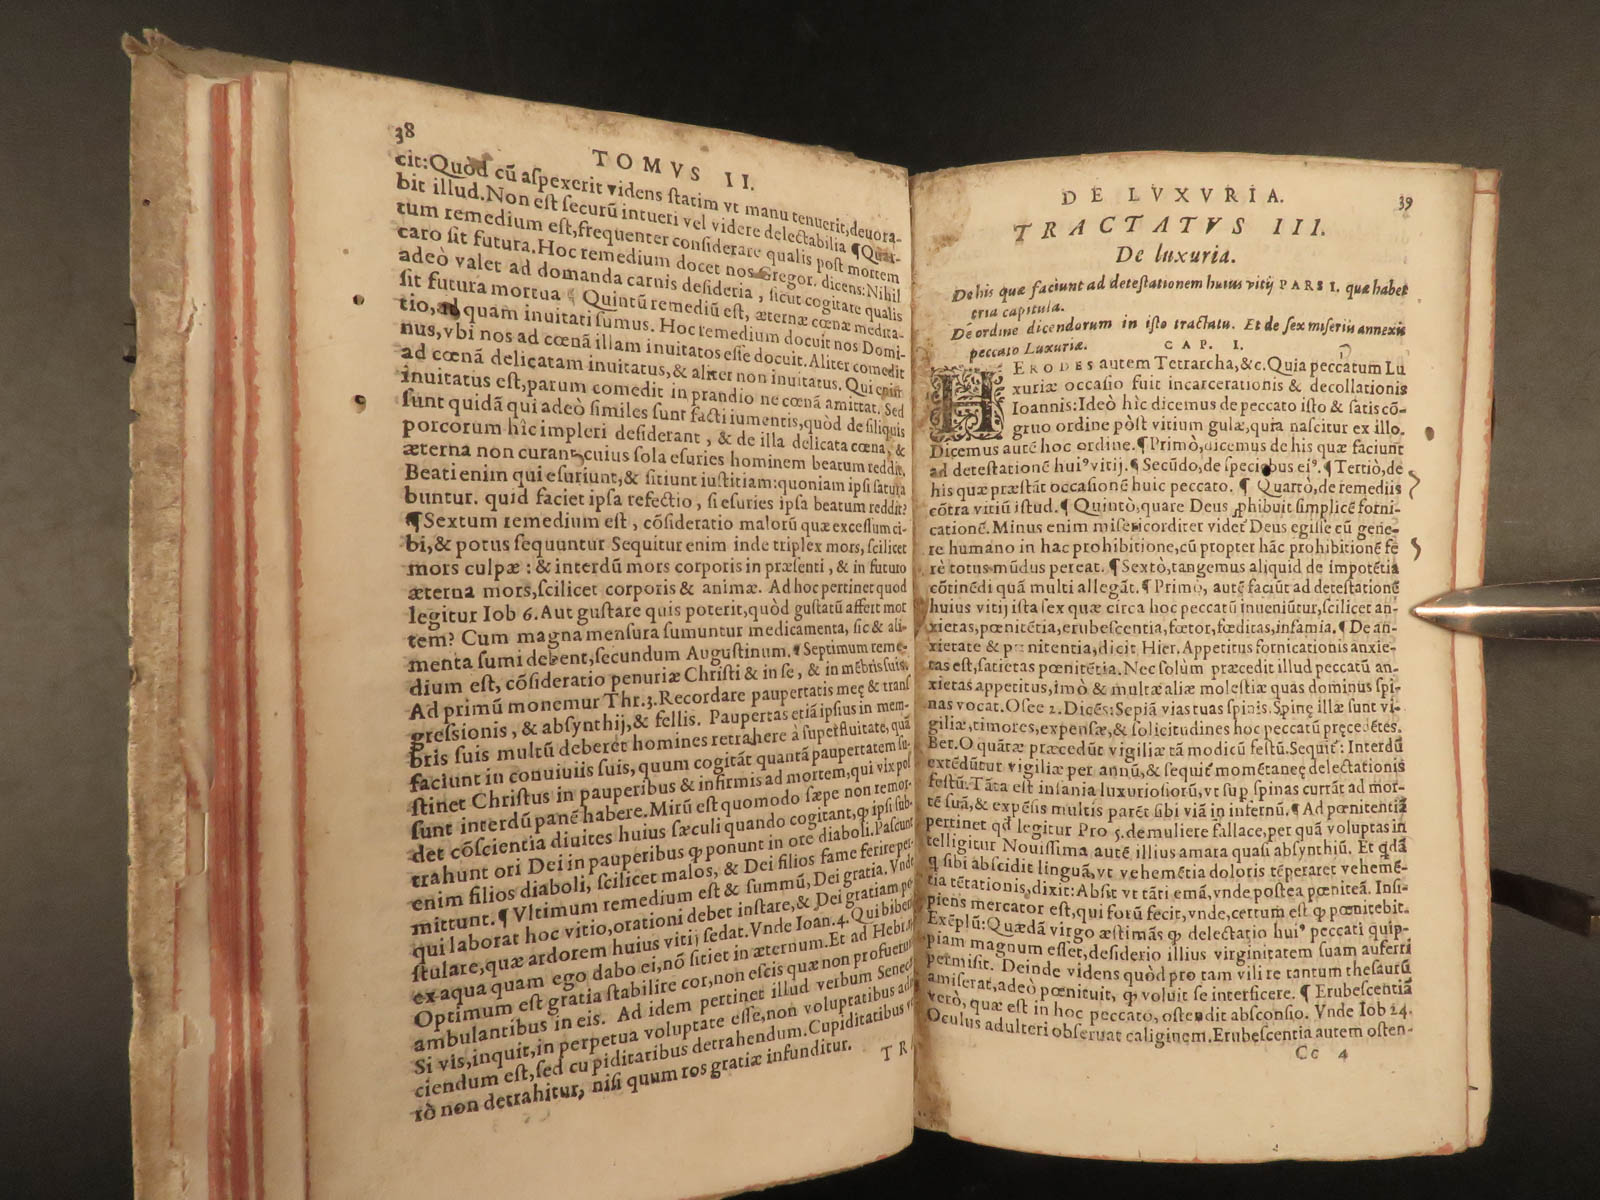 38
TOMVS II.
cit: Quòd cũ aſpexerit videns ſtatim vt manu tenuerit, deuora-
bit illud. Non eſt ſecurũ intueri vel videre delectabilia ¶ Quar-
tum remedium eſt, frequenter conſiderare qualis poſt mortem
caro ſit futura. Hoc remedium docet nos Gregor. dicens: Nihil
adeò valet ad domanda carnis deſideria, ſicut cogitare qualis
ſit futura mortua ¶ Quintũ remediũ eſt, æternæ cœnæ medita-
tio, ad quam inuitati ſumus. Hoc remedium docuit nos Domi-
nus, vbi nos ad cœnã illam inuitatos eſſe docuit. Aliter comedit
ad cœnã delicatam inuitatus, & aliter non inuitatus. Qui enim
inuitatus eſt, parum comedit in prandio ne cœnã amittat. Sed
ſunt quidã qui adeò ſimiles ſunt facti iumentis, quòd de ſiliquis
porcorum hîc impleri deſiderant, & de illa delicata cœna, &
æterna non curant, cuius ſola eſuries hominem beatum reddit.
Beati enim qui eſuriunt, & ſitiunt iuſtitiam: quoniam ipſi ſatura
buntur. quid faciet ipſa refectio, ſi eſuries ipſa beatum reddit?
¶ Sextum remedium eſt, cõſideratio malorũ quæ exceſſum ci-
bi, & potus ſequuntur Sequitur enim inde triplex mors, ſcilicet
mors culpæ: & interdũ mors corporis in præſenti, & in futuro
æterna mors, ſcilicet corporis & animæ. Ad hoc pertinet quod
legitur Iob 6. Aut guſtare quis poterit, quòd guſtatũ affert mor
tem? Cum magna menſura ſumuntur medicamenta, ſic & ali-
menta ſumi debent, ſecundum Auguſtinum. ¶ Septimum reme-
dium eſt, cõſideratio penuriæ Chriſti & in ſe, & in mẽbris ſuis.
Ad primũ monemur Thr. 3. Recordare paupertatis meę & tranſ
greſſionis, & abſynthij, & fellis. Paupertas etiã ipſius in mem-
bris ſuis multũ deberet homines retrahere à ſuperfluitate, quã
faciunt in conuiuiis ſuis, quum cogitãt quantã paupertatem ſu-
ſtinet Chriſtus in pauperibus & infirmis ad mortem, qui vix poſ
ſunt interdũ panẽ habere. Mirũ eſt quomodo ſæpe non remor-
det cõſcientia diuites huius ſæculi quando cogitant, ꝙ ipſi ſub-
trahunt ori Dei in pauperibus ꝙ ponunt in ore diaboli. Paſcunt
enim filios diaboli, ſcilicet malos, & Dei filios fame ferire per-
mittunt. ¶ Vltimum remedium eſt & ſummũ, Dei gratia. Vnde
qui laborat hoc vitio, orationi debet inſtare, & Dei gratiam po
ſtulare, quæ ardorem huius vitij ſedat. Vnde Ioan. 4. Qui biberit
ex aqua quam ego dabo ei, nõ ſitiet in æternum. Et ad Hebr.
Optimum eſt gratia ſtabilire cor, non eſcis quæ non profuerunt
ambulantibus in eis. Ad idem pertinet illud verbum Senecæ
Si vis, inquit, in perpetua voluptate eſſe, non voluptatibus
ciendum eſt, ſed cupiditatibus detrahendum. Cupiditatibus
rò non detrahitur, niſi quum ros gratiæ infunditur.
TR
DE LVXVRIA.
39
TRACTATVS III.
De luxuria.
De his quæ faciunt ad deteſtationem huius vitij PARS I. quæ habet
tria capitula.
De ordine dicendorum in iſto tractatu. Et de ſex miſeriis annexis
peccato Luxuriæ. CAP. I.
HERODES autem Tetrarcha, &c. Quia peccatum Lu
xuriæ occaſio fuit incarcerationis & decollationis
Ioannis: Ideò hîc dicemus de peccato iſto & ſatis cõ-
gruo ordine pòſt vitium gulæ, quia naſcitur ex illo.
Dicemus autẽ hoc ordine. ¶ Primò, dicemus de his quæ faciunt
ad deteſtationẽ huiꝰ vitij. ¶ Secũdo, de ſpeciebus eiꝰ. ¶ Tertiò, de
his quæ præſtãt occaſionẽ huic peccato. ¶ Quartò, de remediis
cõtra vitiũ iſtud. ¶ Quintò, quare Deus ꝓhibuit ſimplicẽ forni-
cationẽ. Minus enim miſericorditer videt᷑ Deus egiſſe cũ gene-
re humano in hac prohibitione, cũ propter hãc prohibitionẽ fe
rè totus mũdus pereat. ¶ Sextò, tangemus aliquid de impotẽtia
cõtinẽdi quã multi allegãt. ¶ Primò, autẽ faciũt ad deteſtationẽ
huius vitij iſta ſex quæ circa hoc peccatũ inueniũtur, ſcilicet an-
xietas, pœnitẽtia, erubeſcentia, fœtor, fœditas, infamia. ¶ De an-
xietate & pœnitentia, dicit Hier. Appetitus fornicationis anxie-
tas eſt, ſatietas pœnitẽtia. Nec ſolùm præcedit illud peccatũ an-
xietas appetitus, imò & multæ aliæ moleſtiæ quas dominus ſpi-
nas vocat. Oſee 2. Dicẽs: Sepiã vias tuas ſpinis. Spinę illæ ſunt vi-
giliæ, timores, expenſæ, & ſolicitudines hoc peccatũ pręcedẽtes.
Ber. O quãtæ præcedũt vigiliæ tã modicũ feſtũ. Sequit᷑: Interdũ
extẽdũtur vigiliæ per annũ, & ſequit᷑ momẽtaneę delectationis
feſtũ. Tãta eſt inſania luxurioſiorũ, vt ſup ſpinas currãt ad mor-
tẽ ſuã, & expẽſis multis parẽt ſibi viã in infernũ. ¶ Ad pœnitentiã
pertinet qd̃ legitur Pro 5. de muliere fallace, per quã voluptas in
telligitur Nouiſſima autẽ illius amara quaſi abſynthiũ. Et qdã
q ſibi abſcidit linguã, vt vehemẽtia doloris tẽperaret vehemẽ-
tia tẽtationis, dixit: Abſit vt tãti emã, vnde poſtea pœniteã. Inſi-
piens mercator eſt, qui forũ fecit, vnde, certum eſt ꝙ pœnitebit.
Exẽplũ: Quædã virgo æſtimãs ꝙ delectatio huiꝰ peccati quip-
piam magnum eſſet, deſiderio illius virginitatem ſuam auferri
permiſit. Deinde videns quòd pro tam vili re tantum theſaurũ
amiſerat, adeò pœnituit, ꝙ voluit ſe interficere. ¶ Erubeſcentiã
verò, quæ eſt in hoc peccato, oſtendit abſconſio. Vnde Iob 24.
Oculus adulteri obſeruat caliginem. Erubeſcentia autem oſten-
Cc 4